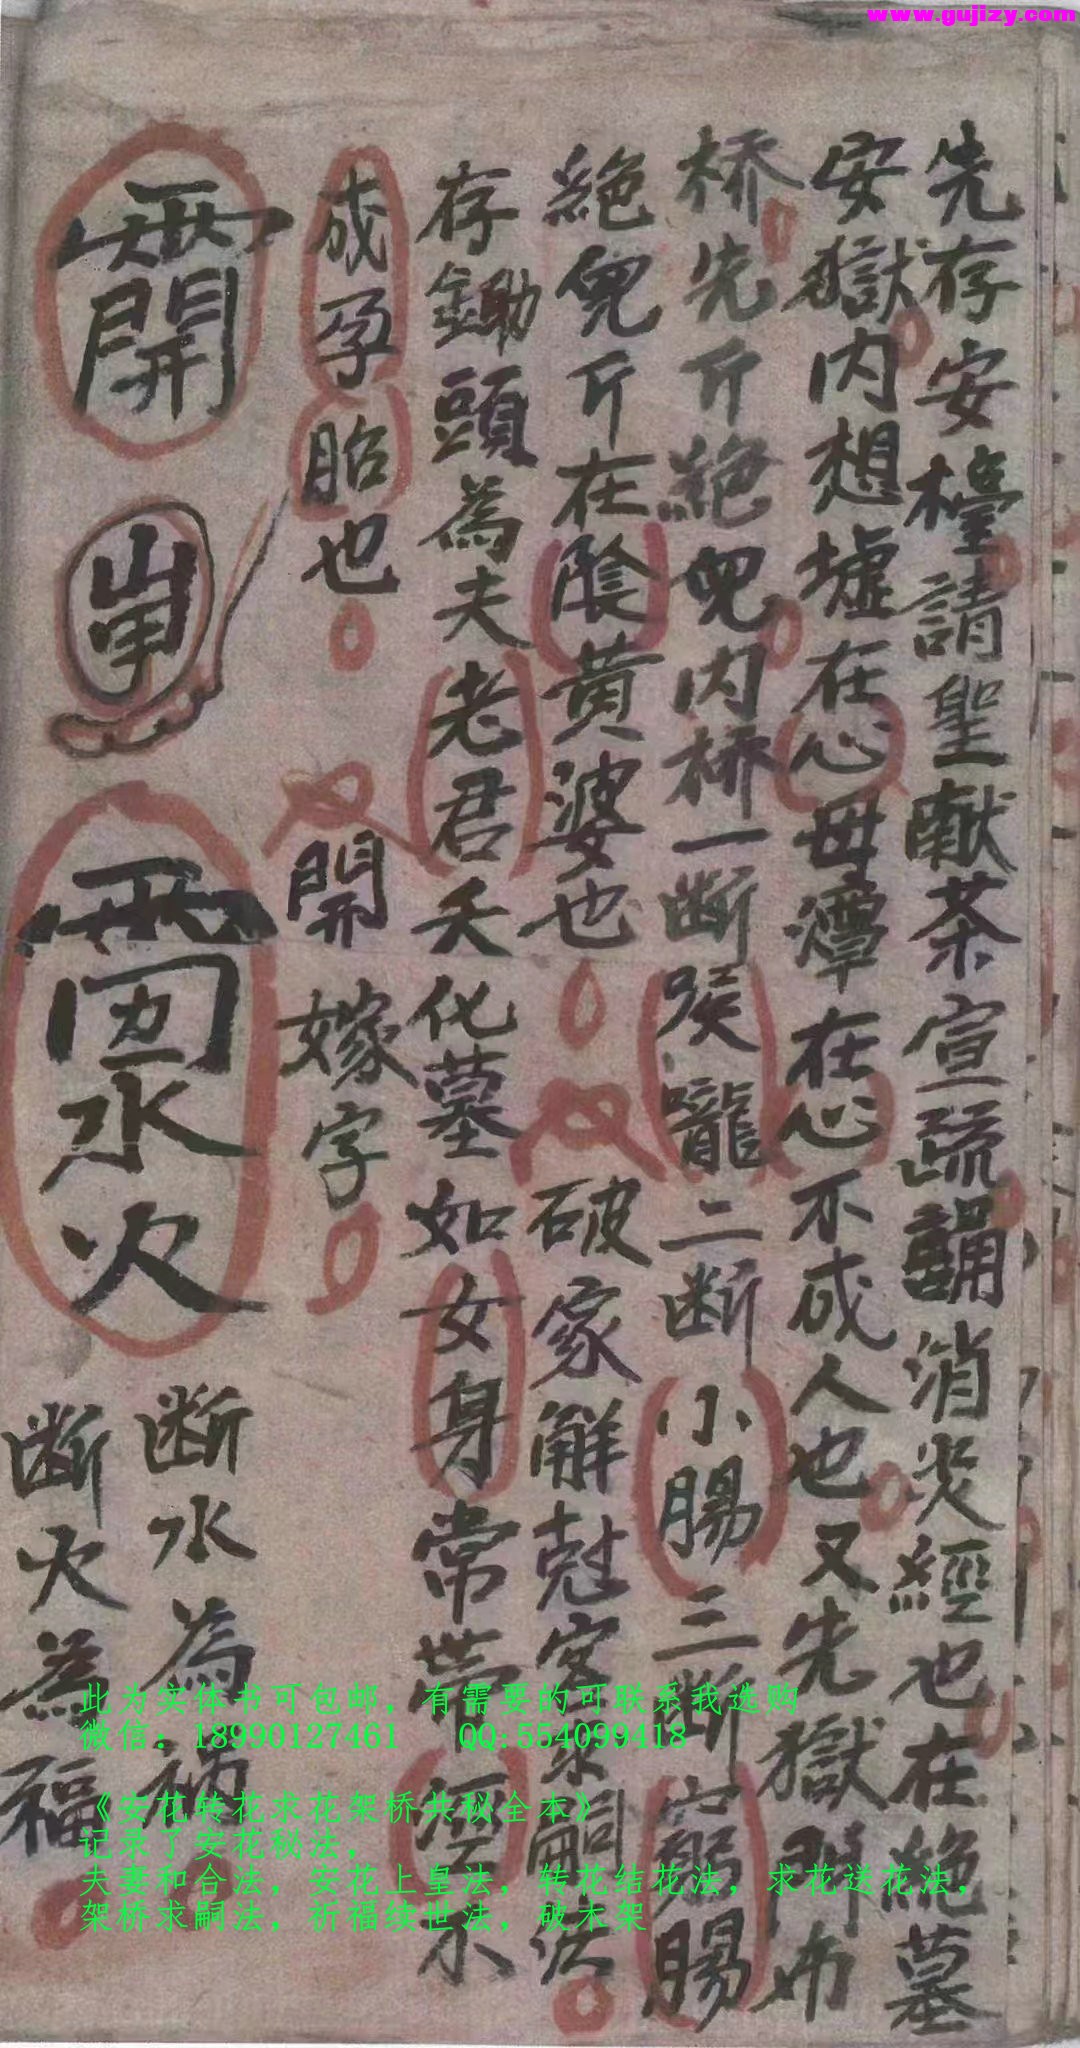 www.gujizy.com
先存安檯請聖献茶宣疏誦消災經也在絶墓
安獄内想墟在心毋潭在心不成人也又先獄門布
桥先斤絶兜内桥一断喉嚨二断小腸三断窮腸
絶兜斤在陰黄婆也 破家解尅客求嗣法
存鋤頭為夫老君夭化墓如女身常帶不
成孕胎也 開嫁字
開
断水為禍
水火
断火為福
此为实体书可包邮，有需要的可联系我选购
微信：18990127461 QQ:554099418
《安花转花求花架桥共秘全本》
记录了安花秘法，
夫妻和合法，安花上皇法，转花结花法，求花送花法，
架桥求嗣法，祈福续世法，破木架